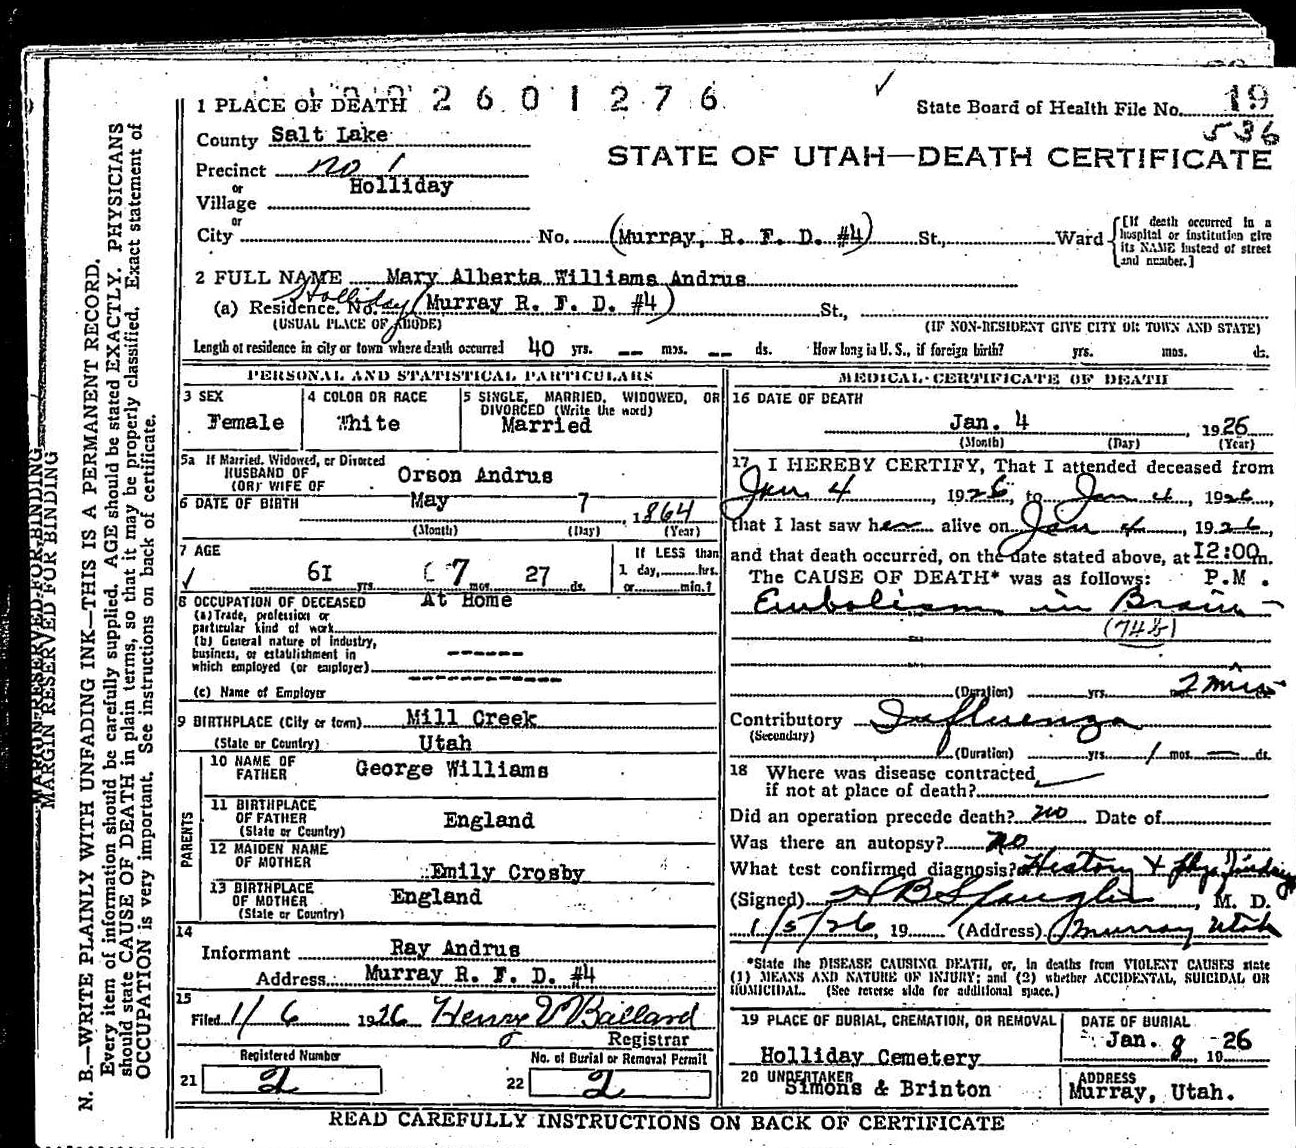 2 6 0 1 2 7 6
1 PLACE OF DEATH
State Board of Health File No. 19
536
County Salt Lake
STATE OF UTAH—DEATH CERTIFICATE
Precinct no 1
or Holliday
Village
or
City No. (Murray, R. F. D. #4) St., Ward
[If death occurred in a hospital or institution give its NAME instead of street and number.]
2 FULL NAME Mary Alberta Williams Andrus
(a) Residence. No. Holliday (Murray R. F. D. #4) St.,
(USUAL PLACE OF ABODE) (IF NON-RESIDENT GIVE CITY OR TOWN AND STATE)
Length of residence in city or town where death occurred 40 yrs. -- mos. -- ds. How long in U. S., if foreign birth? yrs. mos. ds.
PERSONAL AND STATISTICAL PARTICULARS
3 SEX
Female
4 COLOR OR RACE
White
5 SINGLE, MARRIED, WIDOWED, OR
DIVORCED (Write the word)
Married
5a If Married, Widowed, or Divorced
HUSBAND OF
(OR) WIFE OF Orson Andrus
6 DATE OF BIRTH May 7, 1864
(Month) (Day) (Year)
7 AGE
61 yrs. 7 mos. 27 ds.
If LESS than
1 day, hrs.
or min.?
8 OCCUPATION OF DECEASED At Home
(a) Trade, profession or
particular kind of work
(b) General nature of industry,
business, or establishment in
which employed (or employer)
(c) Name of Employer
9 BIRTHPLACE (City or town) Mill Creek
(State or Country) Utah
PARENTS
10 NAME OF
FATHER George Williams
11 BIRTHPLACE
OF FATHER England
(State or Country)
12 MAIDEN NAME
OF MOTHER Emily Crosby
13 BIRTHPLACE
OF MOTHER England
(State or Country)
14
Informant Ray Andrus
Address Murray R. F. D. #4
15
Filed 1/6 1926 Henry V Ballard
Registrar
Registered Number
21 2
No. of Burial or Removal Permit
22 2
MEDICAL CERTIFICATE OF DEATH
16 DATE OF DEATH
Jan. 4, 1926
(Month) (Day) (Year)
17 I HEREBY CERTIFY, That I attended deceased from
Jan 4, 1926, to Jan 4, 1926,
that I last saw her alive on Jan 4, 1926,
and that death occurred, on the date stated above, at 12:00 m.
The CAUSE OF DEATH* was as follows: P.M.
Embolism in Brain
(74b)
(Duration) yrs. 2 mins
Contributory Influenza
(Secondary)
(Duration) yrs 1 mos. — ds.
18 Where was disease contracted
if not at place of death?
Did an operation precede death? no Date of
Was there an autopsy? no
What test confirmed diagnosis? History & Phy. Findings
(Signed) H B Spangler, M. D.
1/5/26, 19 (Address) Murray Utah
*State the DISEASE CAUSING DEATH, or, in deaths from VIOLENT CAUSES state
(1) MEANS AND NATURE OF INJURY; and (2) whether ACCIDENTAL, SUICIDAL OR
HOMICIDAL. (See reverse side for additional space.)
19 PLACE OF BURIAL, CREMATION, OR REMOVAL
Holliday Cemetery
DATE OF BURIAL
Jan. 8 19 26
20 UNDERTAKER
Simons & Brinton
ADDRESS
Murray, Utah.
READ CAREFULLY INSTRUCTIONS ON BACK OF CERTIFICATE
MARGIN RESERVED FOR BINDING
MARGIN RESERVED FOR BINDING
N. B.—WRITE PLAINLY WITH UNFADING INK—THIS IS A PERMANENT RECORD.
Every item of information should be carefully supplied. AGE should be stated EXACTLY. PHYSICIANS
should state CAUSE OF DEATH in plain terms, so that it may be properly classified. Exact statement of
OCCUPATION is very important. See instructions on back of certificate.